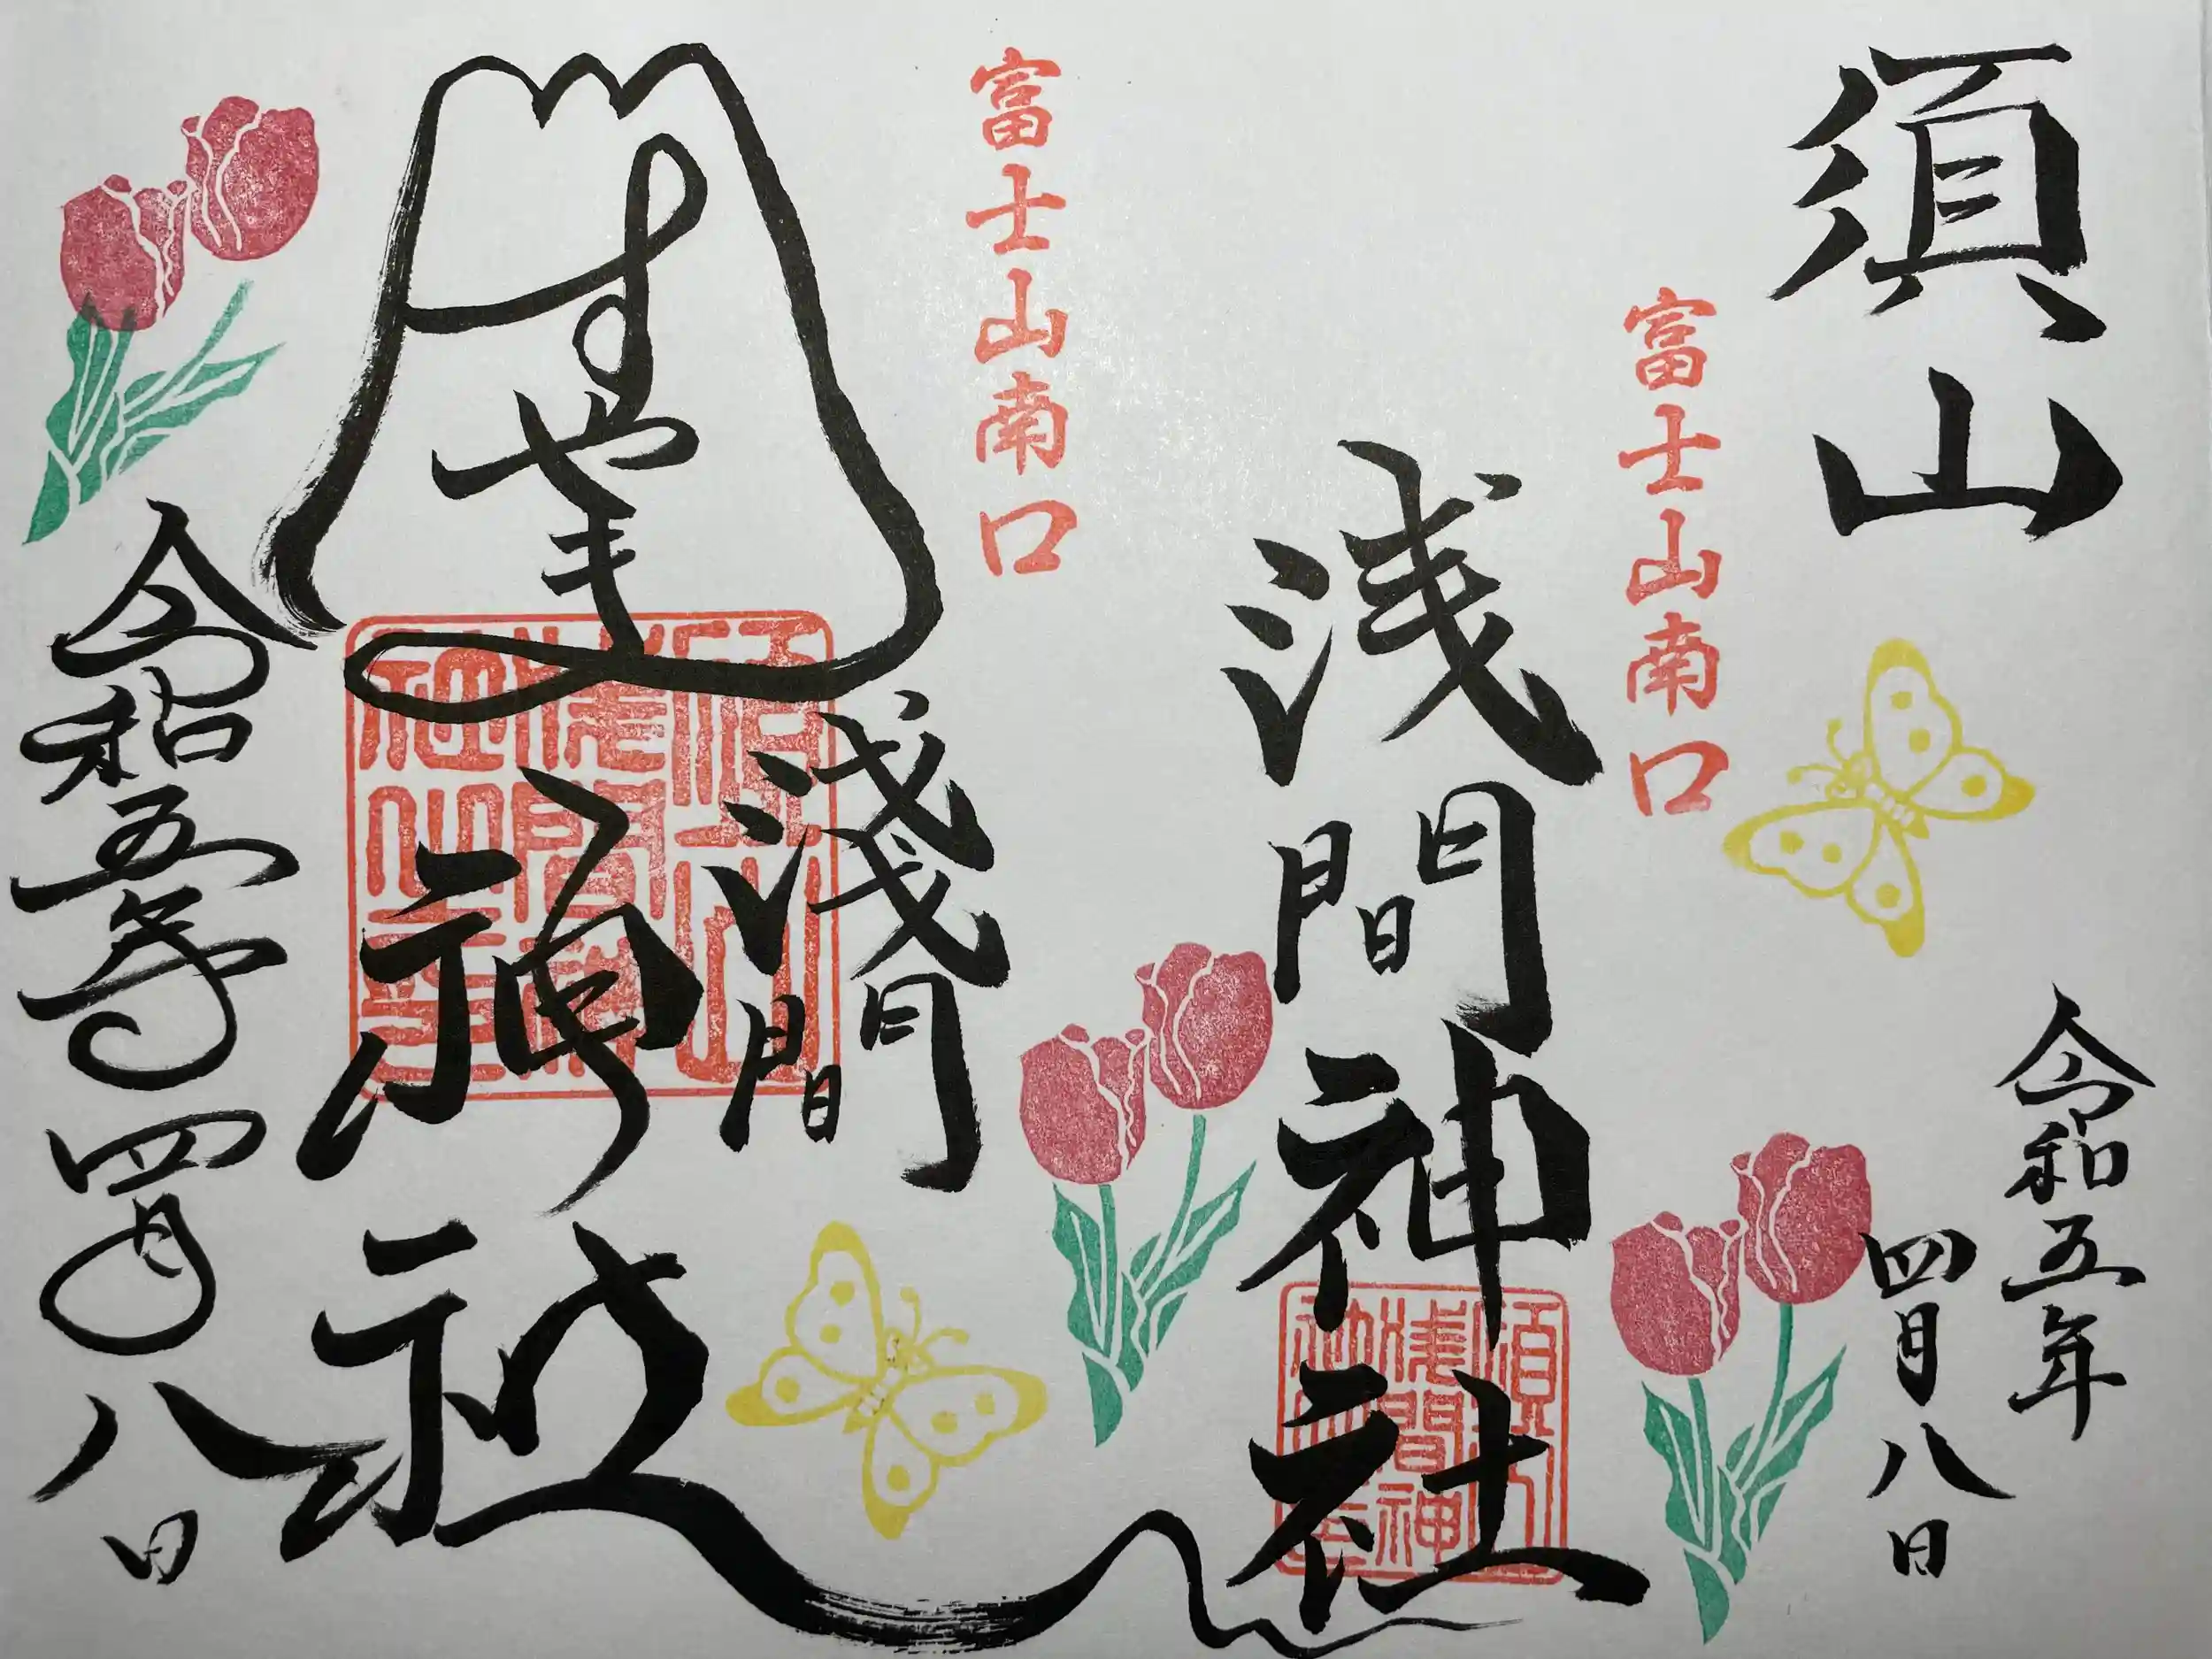 須山
浅間神社
令和五年
四月八日
富士山南口
富士山南口
すやま
淺間
神社
令和五年四月八日
須山
浅間神